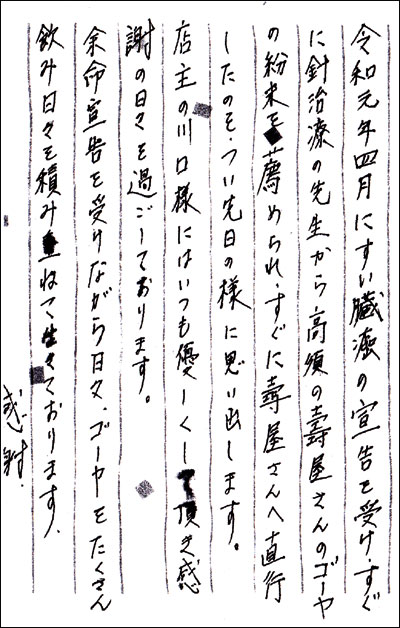 令和元年四月にすい臓癌の宣告を受け、すぐ
に針治療の先生から高須の壽屋さんのゴーヤ
の紛末を薦められ、すぐに壽屋さんへ直行
したのを、つい先日の様に思い出します。
店主の川口様にはいつも優しくして頂き感
謝の日々を過ごしております。
余命宣告を受けながら日々、ゴーヤをたくさん
飲み日々を積み重ねて生きております、
感謝.